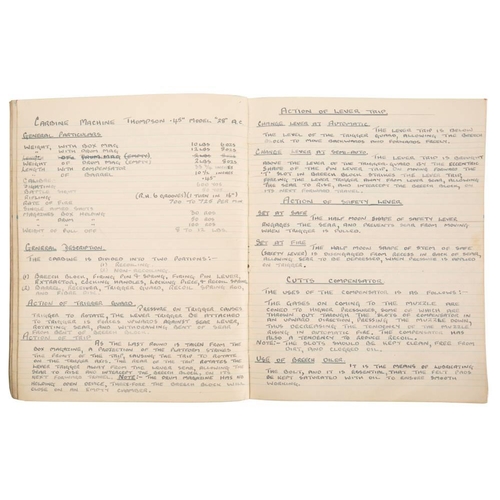 CARBINE MACHINE THOMPSON .45" MODEL "28" A.C
GENERAL PARTICULARS
WEIGHT, WITH BOX MAG
WITH DRUM MAG
WEIGHT OF BOX MAG (EMPTY)
LENGTH WITH COMPENSATOR
BARREL
CALIBRE
SIGHTING
BATTLE SIGHT
RIFLING (R.H. 6 GROOVES)(1 TURN IN 16")
RATE OF FIRE 700 TO 725 PER MIN
MAGAZINES BOX HOLDING
" DRUM "
WEIGHT OF PULL OFF
GENERAL DESCRIPTION.
THE CARBINE IS DIVIDED INTO TWO PORTIONS:-
(1) RECOILING.
(2) NON-RECOILING.
(1) BREECH BLOCK, FIRING PIN & SPRING, FIRING PIN LEVER,
EXTRACTOR, COCKING HANDLES, LOCKING PIECE, & RECOIL SPRING
(2) BARREL, RECEIVER, TRIGGER GUARD, RECOIL SPRING ROD,
AND PIVOT
ACTION OF TRIGGER GUARD. PRESSURE ON TRIGGER CAUSES
TRIGGER TO ROTATE, THE LEVER TRIGGER BEING ATTACHED
TO TRIGGER IS FORCED UPWARDS AGAINST SEAR LEVER,
ROTATING SEAR, AND WITHDRAWING BENT OF SEAR
FROM BENT OF BREECH BLOCK.
ACTION OF TRIP. AS THE LAST ROUND IS TAKEN FROM THE
BOX MAGAZINE, A PROJECTION OF THE PLATFORM STRIKES
THE FRONT OF THE TRIP, CAUSING THE TRIP TO ROTATE
ON THE TRIGGER AXIS. THE REAR OF THE TRIP TAKES THE
LEVER TRIGGER AWAY FROM THE LEVER SEAR, ALLOWING THE
SEAR TO RISE AND INTERCEPT THE BREECH BLOCK, ON ITS
NEXT FORWARD TRAVEL. NOTE:- THE DRUM MAGAZINE HAS NO
HOLDING OPEN DEVICE, THEREFORE THE BREECH BLOCK WILL
CLOSE ON AN EMPTY CHAMBER.
ACTION OF LEVER TRIP.
CHANGE LEVER AT AUTOMATIC. THE LEVER TRIP IS BELOW
THE LEVEL OF THE TRIGGER GUARD, ALLOWING THE BREECH
BLOCK TO MOVE BACKWARDS AND FORWARDS FREELY.
CHANGE LEVER AT SEMI-AUTO. THE LEVER TRIP IS BROUGHT
ABOVE THE LEVEL OF THE TRIGGER GUARD BY THE ECCENTRIC
SHAPE OF THE PIN LEVER TRIP, ON MOVING FORWARD THE
SLOT IN BREECH BLOCK STRIKES THE LEVER TRIP,
FORCING THE LEVER TRIGGER AWAY FROM LEVER SEAR, ALLOWING
THE SEAR TO RISE, AND INTERCEPT THE BREECH BLOCK, ON
ITS NEXT FORWARD TRAVEL.
ACTION OF SAFETY LEVER.
SET AT SAFE. THE HALF MOON SHAPE OF SAFETY LEVER
ENGAGES THE SEAR, AND PREVENTS SEAR FROM MOVING,
WHEN TRIGGER IS PULLED.
SET AT FIRE. THE HALF MOON SHAPE OF STEM OF SAFE
(SAFETY LEVER) IS DISENGAGED FROM RECESS IN BACK OF SEAR,
ALLOWING SEAR TO BE DEPRESSED, WHEN PRESSURE IS APPLIED
ON TRIGGER.
CUTTS COMPENSATOR.
THE USES OF THE COMPENSATOR IS AS FOLLOWS:-
THE GASES ON COMING TO THE MUZZLE ARE
FORCED TO HIGHER PRESSURES, SOME OF WHICH ARE
THROWN OUT THROUGH THE SLOTS OF COMPENSATOR IN
AN UPWARD DIRECTION, PRESSING THE MUZZLE DOWN,
THUS DECREASING THE TENDENCY OF THE MUZZLE
RISING IN AUTOMATIC FIRE. THE COMPENSATOR HAS
ALSO A TENDENCY TO REDUCE RECOIL.
NOTE:- THE SLOTS SHOULD BE KEPT CLEAN, FREE FROM
DIRT, AND CLOGGED OIL.
USE OF BREECH OILER. IT IS THE MEANS OF LUBRICATING
THE BOLT, AND IT IS ESSENTIAL, THAT THE FELT PADS
BE KEPT SATURATED WITH OIL TO ENSURE SMOOTH
WORKING.